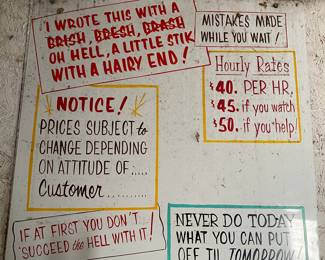 I WROTE THIS WITH A
BRISH, BRESH, BRASH
OH HELL, A LITTLE STIK
WITH A HAIRY END!
MISTAKES MADE
WHILE YOU WAIT!
Hourly Rates
$40. PER HR.
$45. if you watch
$50. if you help!
NOTICE!
PRICES SUBJECT to
CHANGE DEPENDING
ON ATTITUDE OF.....
Customer.........
IF AT FIRST YOU DON'T
SUCCEED the HELL WITH IT!
NEVER DO TODAY
WHAT YOU CAN PUT
OFF TIL TOMORROW!